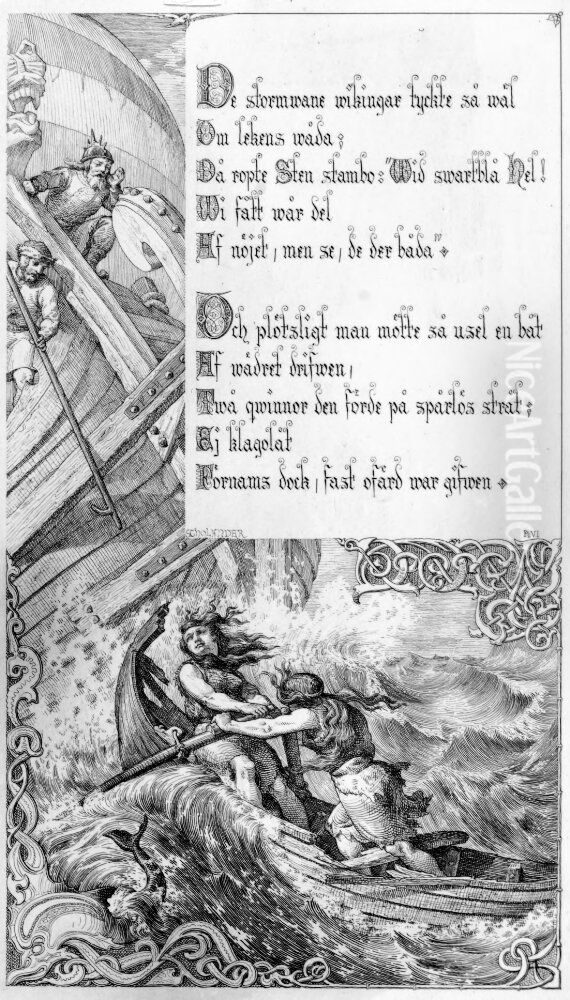 De stormwane wikingar tyckte så wäl
Om lekens wåda;
Då ropte Sten stambo: "Wid swartblå Hel!
Wi fått wår del
Af nöjet, men se, de der båda"
Och plötsligt man mötte så usel en båt
Af wädret drifwen,
Twå qwinnor den förde på spårlös stråt;
Ej klagolåt
Förnams dock, fast ofärd war gifwen
Pl VI
NiceArtGalle